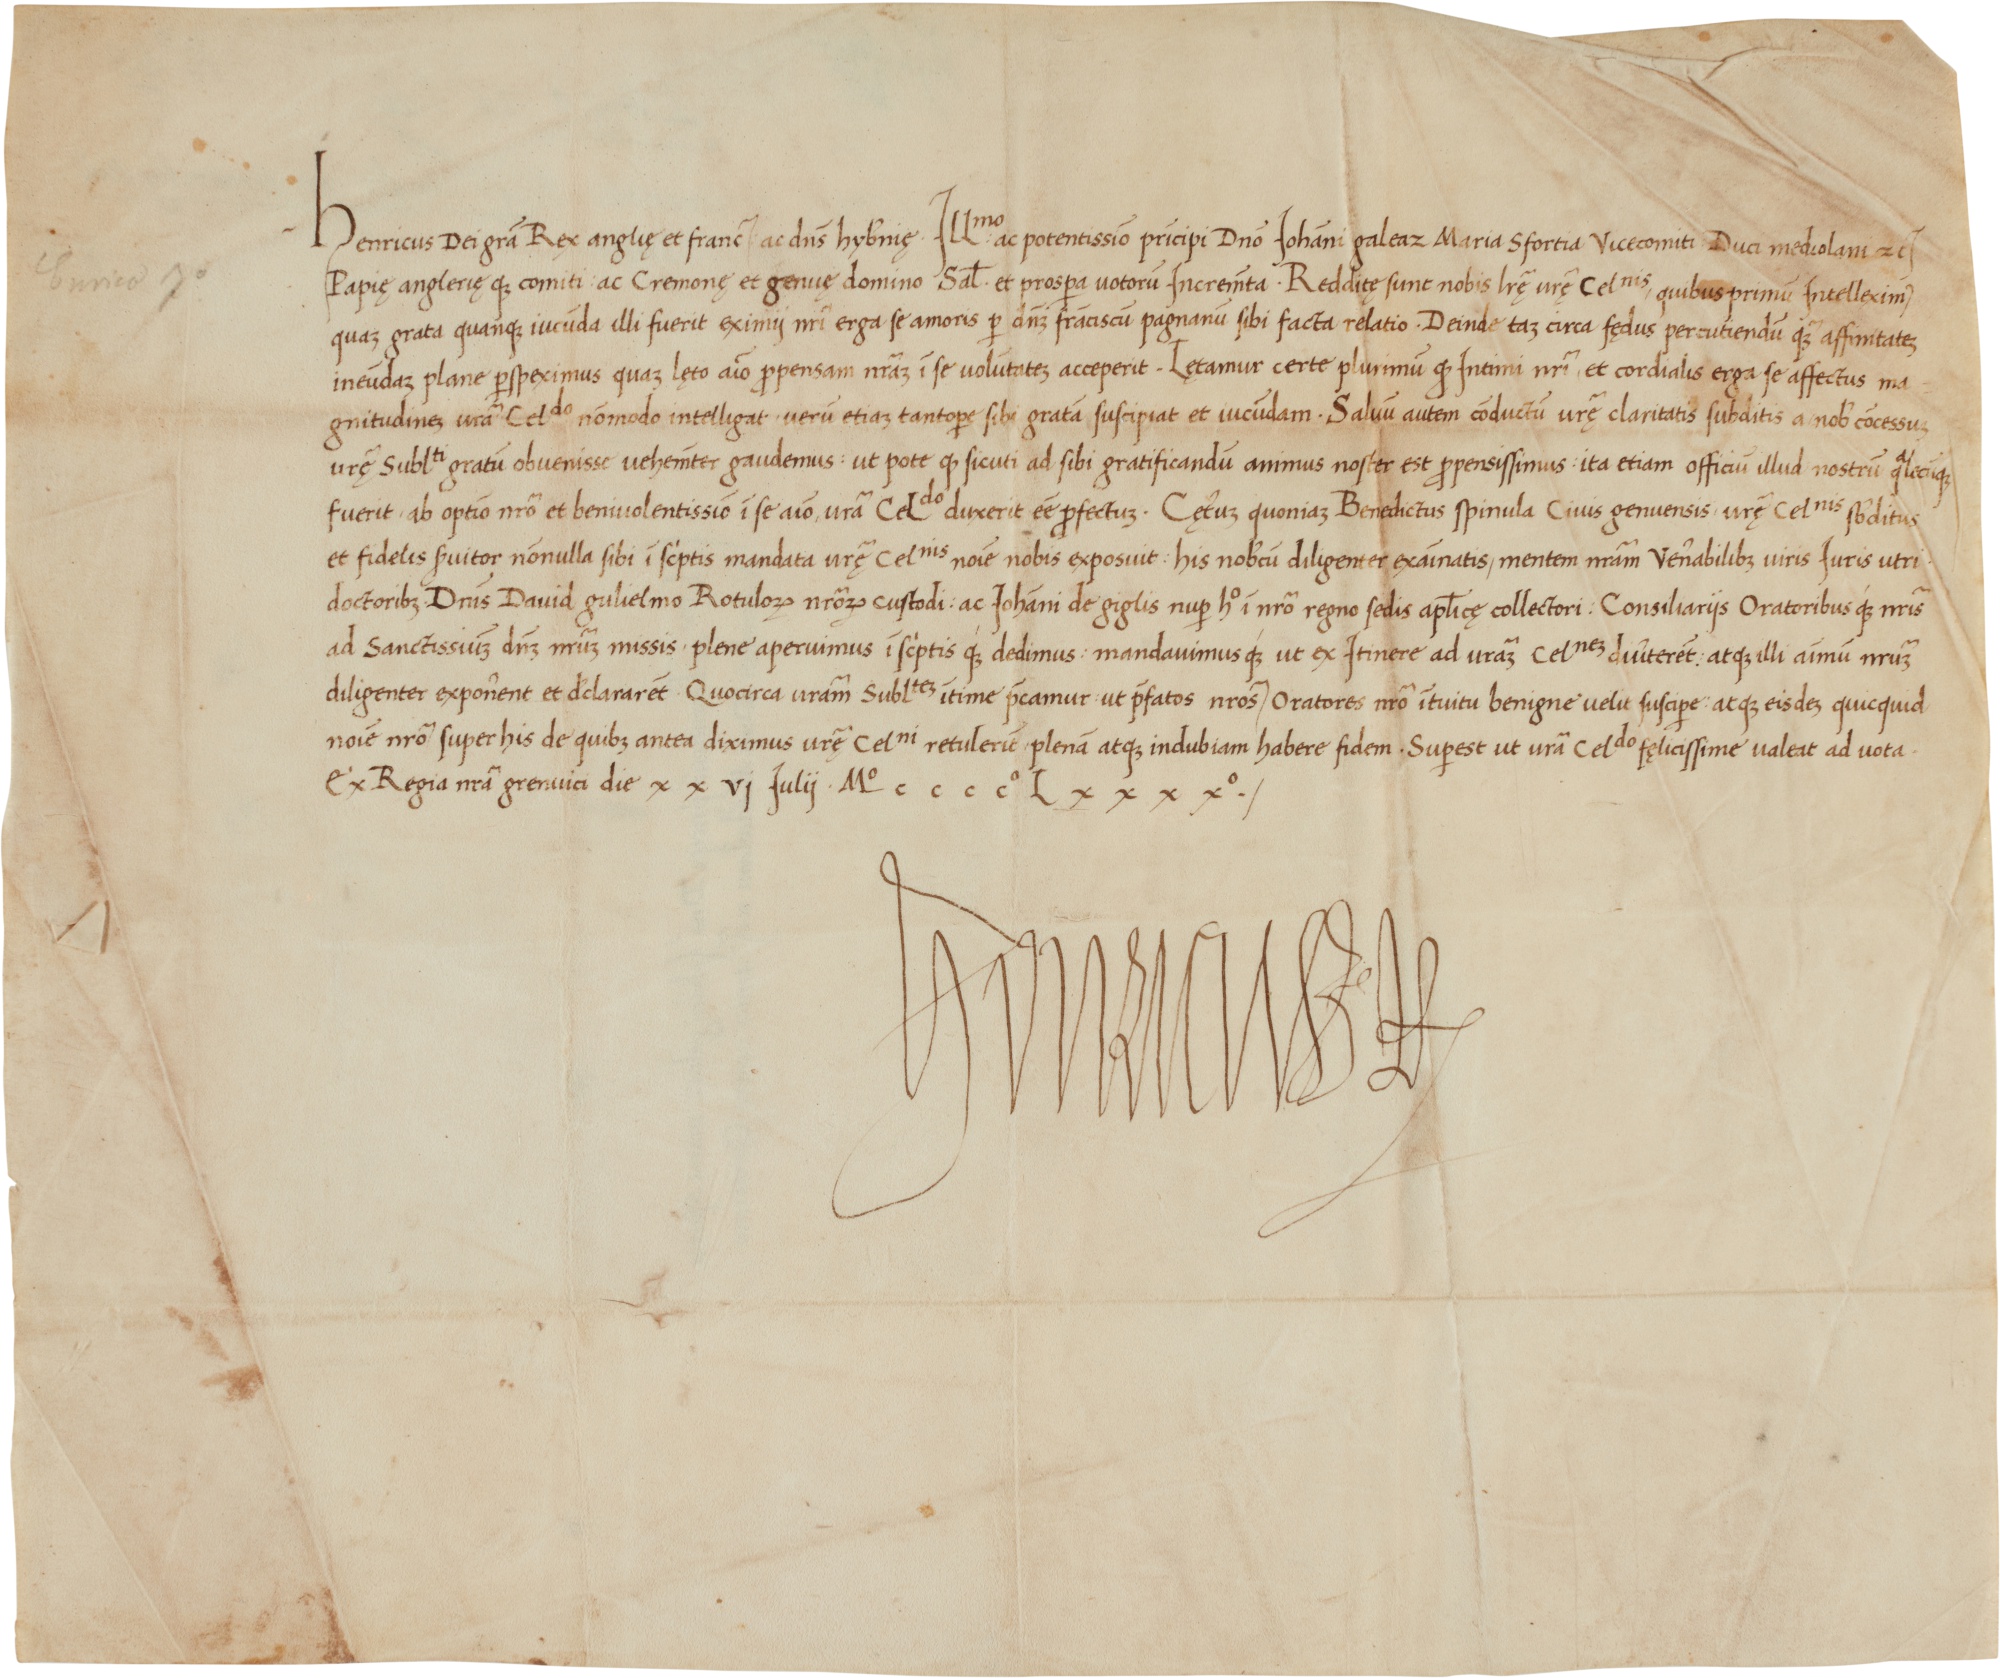 Enrico 7º
Henricus Dei grã Rex anglię et franc̃ ac dns̃ hybnię · Ill^mo ac potentissio pricipi Dnõ Johãni galeaz Maria Sfortia Vicecomiti Duci mediolani ꝛcʒ
Papię anglerię qʒ comiti : ac Cremonę et genuę domino Sal̃ · et prospa uotorũ Increm̃ta · Redditę sunt nobis lrę̃ urę̃ Cel^nis, quibus primũ Intellexim̃
quaʒ grata quanqʒ iucũda illi fuerit eximij nrĩ erga se amoris p dnʒ̃ frãciscũ pagnanũ sibi facta relatio · Deinde taʒ circa fędus percutiendũ qʒ affinitateʒ
ineũdaʒ plane pspeximus quaʒ lęto aĩo ppensam nrãʒ ĩ se uolũtateʒ acceperit · Lętamur certe plurimũ ꝙ Intimi nrĩ, et cordialis erga se affectus ma
gnitudineʒ urã Cel^do nõmodo intelligat · uerũ etiaʒ tantope sibi gratã suscipiat et iucũdam · Saluũ autem cõductũ urę̃ claritatis subditis a nob̃ cõcessuʒ
urę̃ Subl^ti gratũ obuenisse uehem̃ter gaudemus : ut pote ꝙ sicuti ad sibi gratificandũ animus noster est ppensissimus : ita etiam officiũ illud nostrũ qalecũqʒ
fuerit · ab optio nrõ et beniuolentissio ĩ se aĩo, urã Cel^do duxerit eẽ pfectuʒ · Cętuʒ quoniaʒ Benedictus spinula Ciuis genuensis · urę̃ Cel^nis sbditus
et fidelis suitor nõnulla sibi ĩ scptis mandata urę̃ Cel^nis noĩe nobis exposuit : his nobcũ diligenter exaĩnatis, mentem nrãm Venabilibʒ uiris Iuris utri ·
doctoribʒ Dnis̃ Dauid gulielmo Rotuloꝝ nrõꝝ custodi : ac Johãni de giglis nup hº ĩ nrõ regno sedis apl̃icę collectori : Consiliarijs Oratoribus qʒ nris̃
ad Sanctissiuʒ dnʒ̃ nrũʒ missis · plene aperuimus ĩ scptis qʒ dedimus : mandauimus qʒ ut ex Itinere ad urãʒ Cel^neʒ diuterẽt : atqʒ illi aĩmũ nrũʒ
diligenter exponent et dclararẽt · Quocirca urãm Subl^teʒ ĩtime pcamur : ut pfatos nros̃ Oratores nrõ ĩtuitu benigne uelit suscipe : atqʒ eisdeʒ quicquid
noĩe nrõ super his de quibʒ antea diximus urę̃ Cel^ni retulerĩt, plenã atqʒ indubiam habere fidem · Supest ut urã Cel^do fęlicissime ualeat ad uota ·
Ex Regia nrã grenuici die x x vj Julij · Mº c c c cº L x x x xº · /
Henricus R